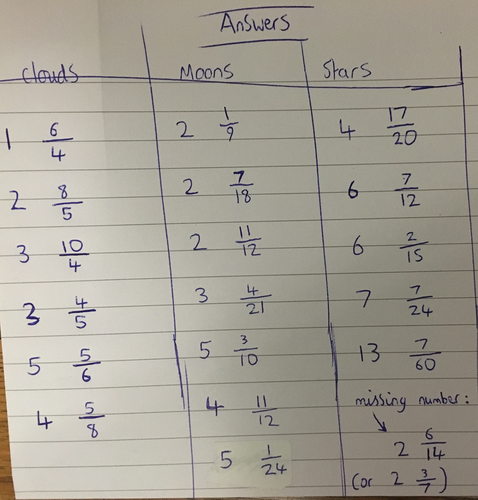 Answers
Clouds Moons Stars
1 6/4 2 1/9 4 17/20
2 8/5 2 7/18 6 7/12
3 10/4 2 11/12 6 2/15
3 4/5 3 4/21 7 7/24
5 5/6 5 3/10 13 7/60
4 5/8 4 11/12 missing number:
5 1/24 2 6/14
(or 2 3/7)